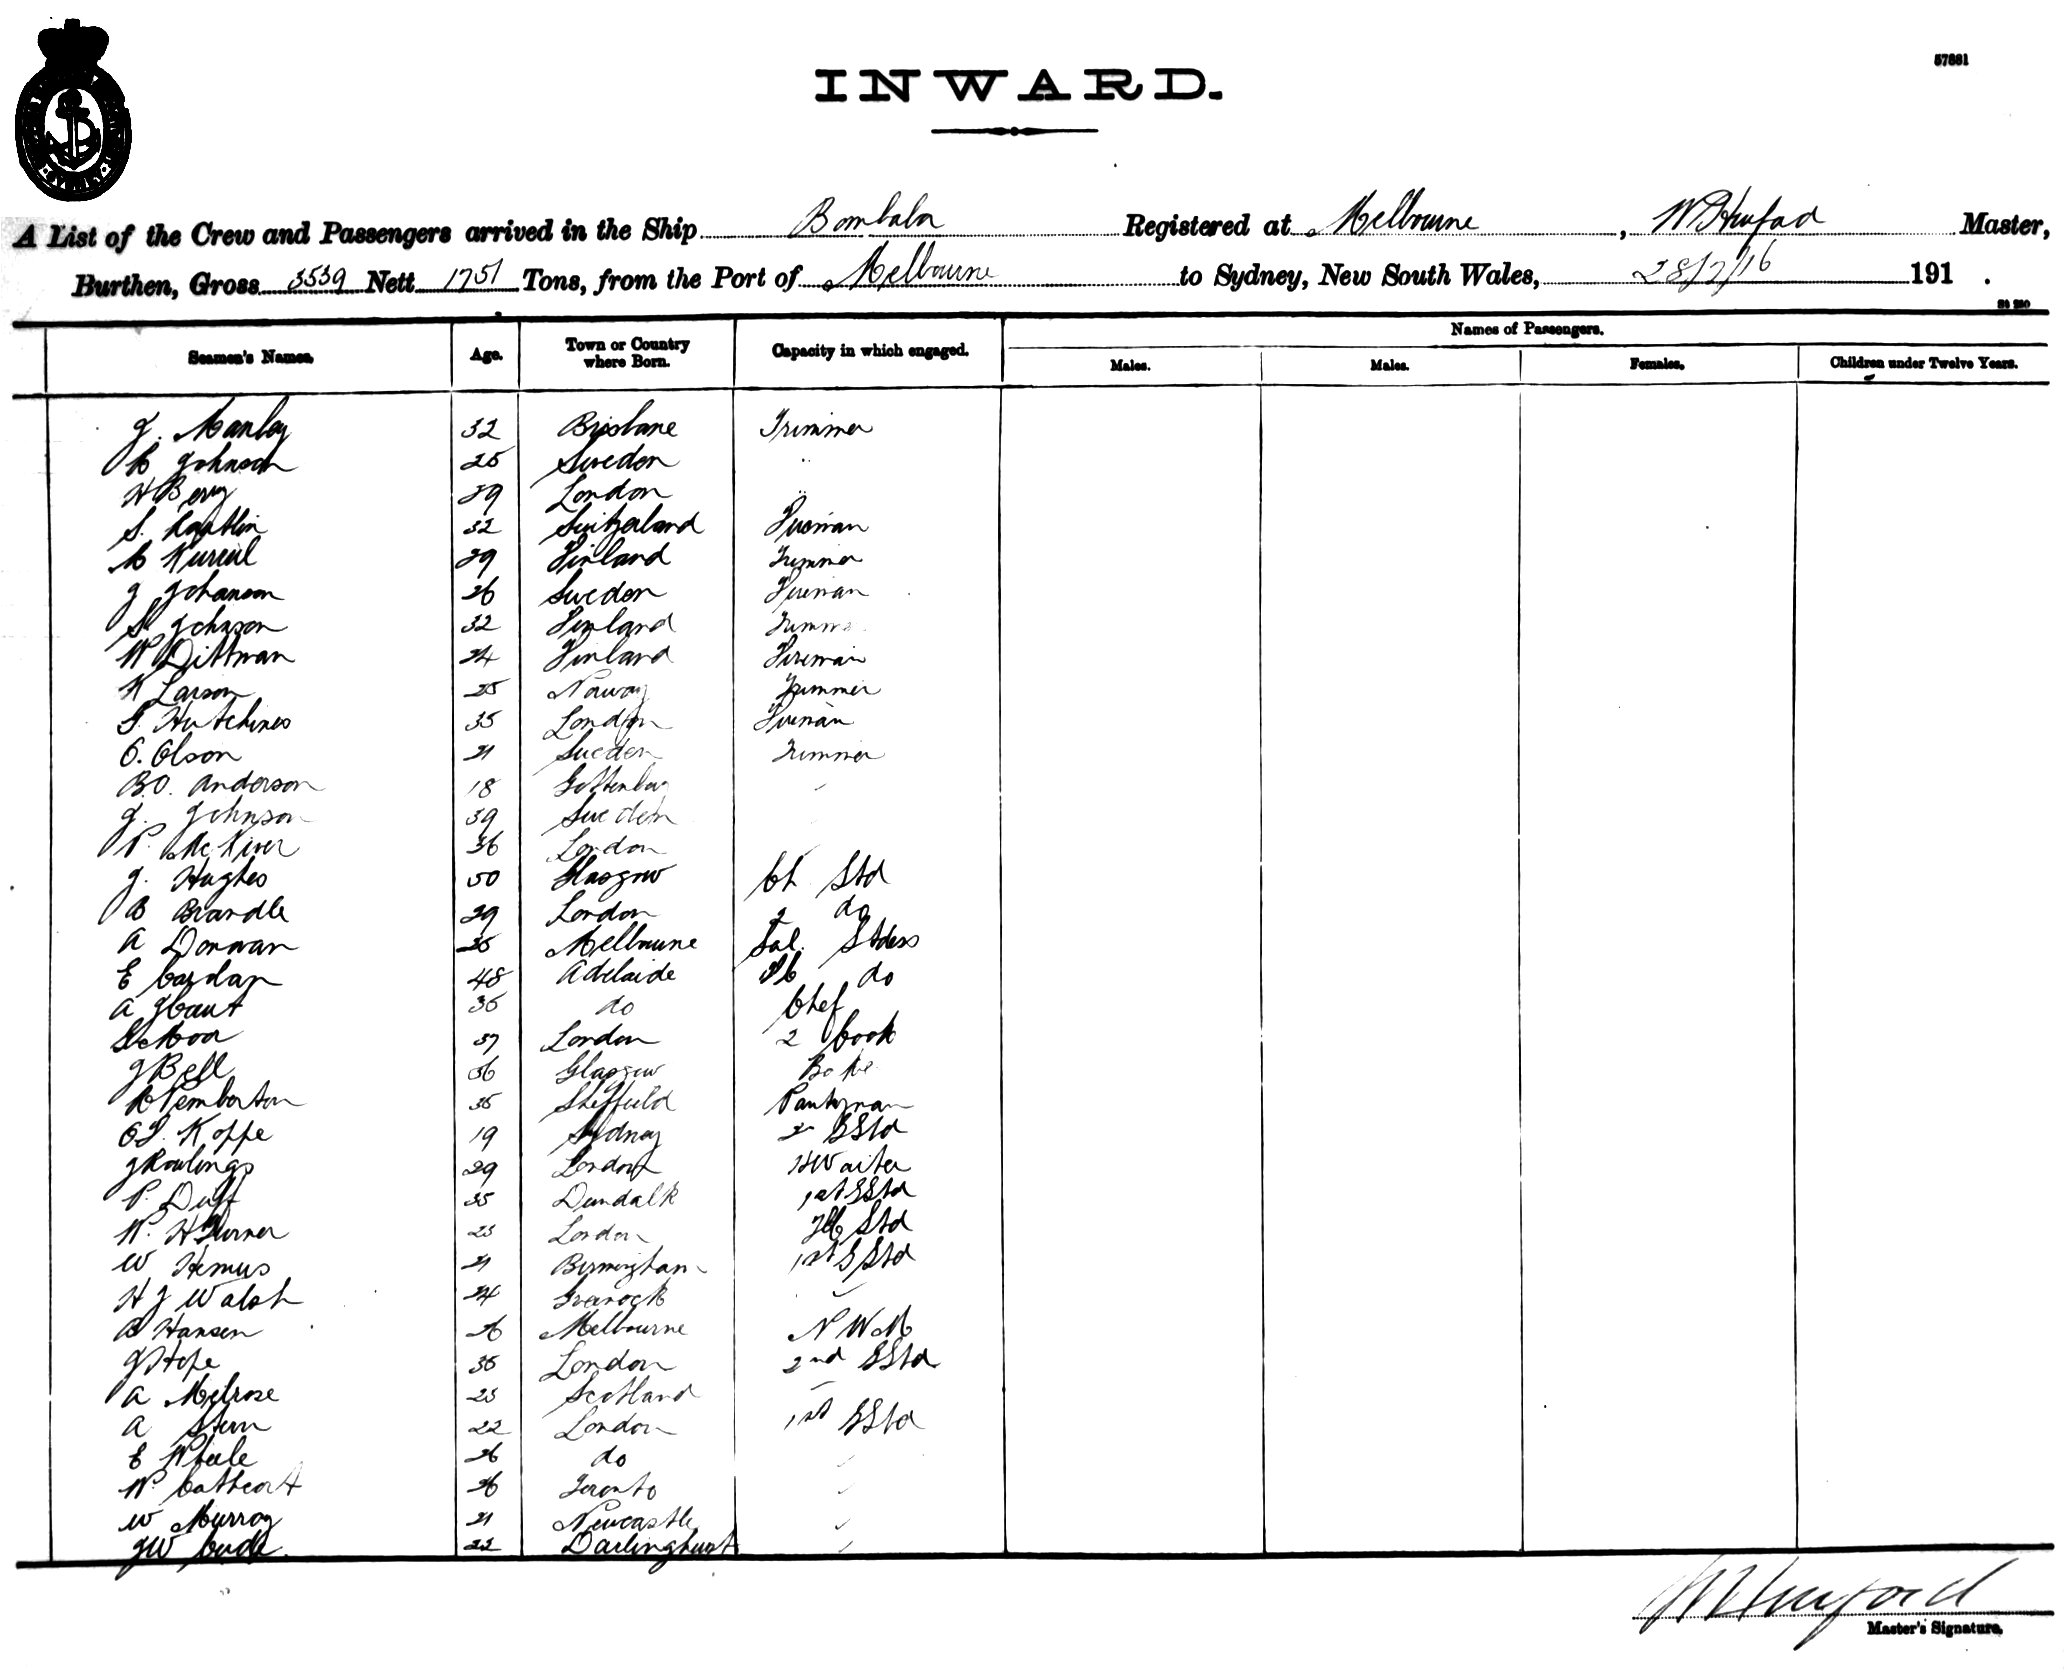 57881
INWARD.
SYDNEY
A List of the Crew and Passengers arrived in the Ship Bombala Registered at Melbourne, Master,
Burthen, Gross 3539 Nett 1751 Tons, from the Port of Melbourne to Sydney, New South Wales, 28/2/16 191 .
Names of Passengers.
Seamen's Names. Age. Town or Country where Born. Capacity in which engaged. Males. Males. Females. Children under Twelve Years.
J. Manley 32 Brisbane Trimmer
C Johnson 25 Sweden ..
H Berry 39 London ..
S. 32 Switzerland Fireman
29 Finland Trimmer
J Johanson 26 Sweden Fireman
S Johnson 32 Finland Trimmer
W Dittman 24 Finland Fireman
K Larson 25 Norway Trimmer
G. Hutchines 35 London Fireman
O. Olson 21 Sweden Trimmer
B.O. Anderson 18 Gottenburg
J. Johnson 39 Sweden
P. McKiver 36 London
J. Hughes 50 Glasgow Ch Std
B Brandle 29 London 2 do
A Donovan 35 Melbourne Sal. Stdess
E 48 Adelaide do
A Gbaut 36 do Chef
Moor 37 London 2 Cook
J Bell 36 Glasgow Bake
C Pemberton 35 Sheffield Pantryman
O J. Koppe 19 Sydney 2 SStd
J Rowlings 29 London HWaiter
P. Duff 35 Dundalk 1st SStd
W. H Turner 23 London Std
W Hemus 21 Birmingham 1st SStd
H J Walsh 24 Greenock
B Hansen 26 Melbourne N W M
J Hope 36 London 2nd SStd
A Melrose 23 Scotland
A Stern 22 London 1st SStd
E Wheele 26 do
W. Cathcart 26 Toronto
W Murray 21 Newcastle
JW 22 Darlinghurst
Master's Signature.